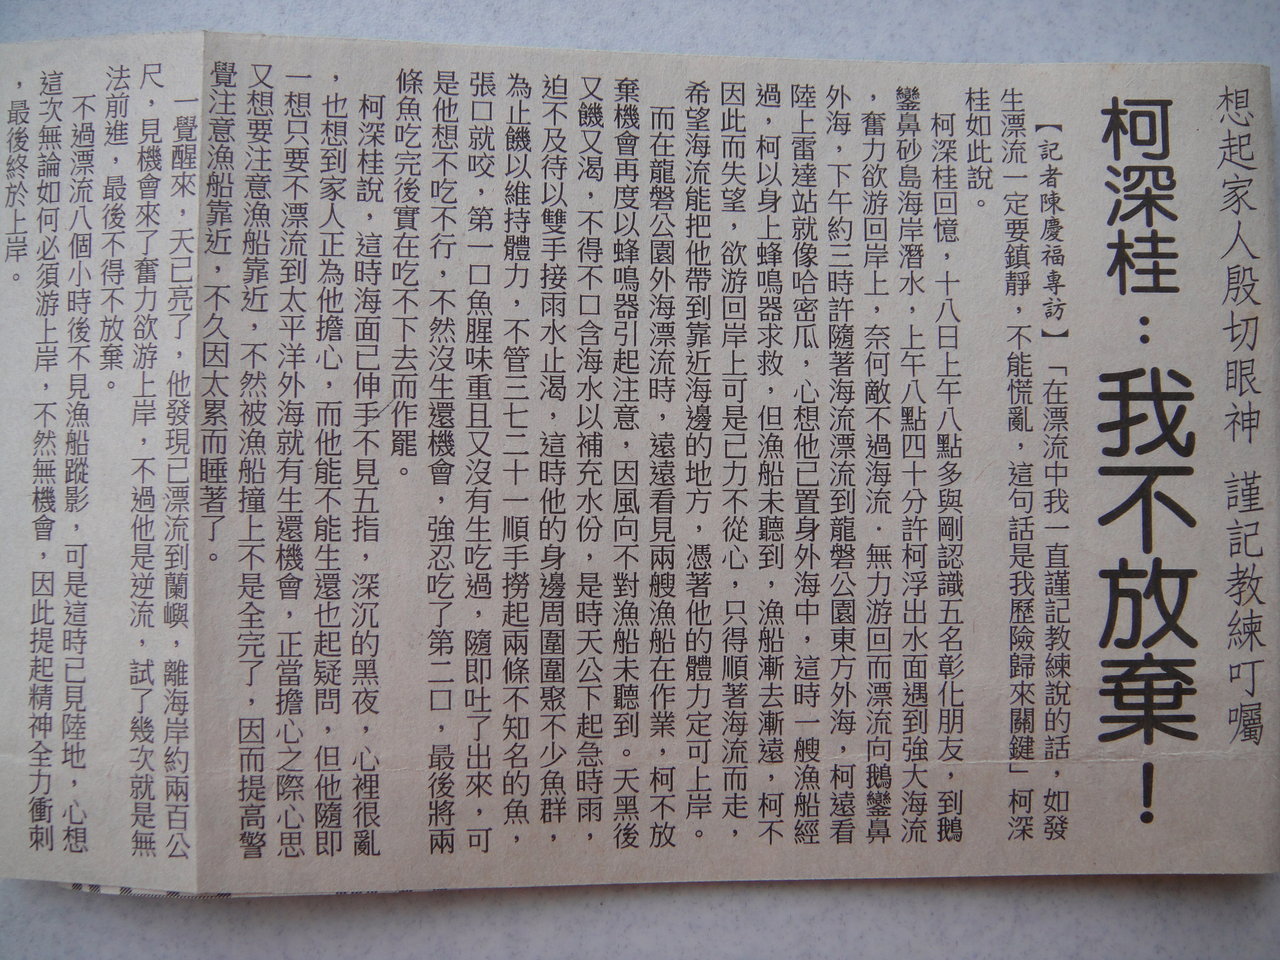 想起家人殷切眼神 謹記教練叮囑
柯深桂：我不放棄！
【記者陳慶福專訪】「在漂流中我一直謹記教練說的話，如發
生漂流一定要鎮靜，不能慌亂，這句話是我歷險歸來關鍵」柯深
桂如此說。
柯深桂回憶，十八日上午八點多與剛認識五名彰化朋友，到鵝
鑾鼻砂島海岸潛水，上午八點四十分許柯浮出水面遇到強大海流
，奮力欲游回岸上，奈何敵不過海流．無力游回而漂流向鵝鑾鼻
外海，下午約三時許隨著海流漂流到龍磐公園東方外海，柯遠看
陸上雷達站就像哈密瓜，心想他已置身外海中，這時一艘漁船經
過，柯以身上蜂鳴器求救，但漁船未聽到，漁船漸去漸遠，柯不
因此而失望，欲游回岸上可是已力不從心，只得順著海流而走，
希望海流能把他帶到靠近海邊的地方，憑著他的體力定可上岸。
而在龍磐公園外海漂流時，遠遠看見兩艘漁船在作業，柯不放
棄機會再度以蜂鳴器引起注意，因風向不對漁船未聽到。天黑後
又饑又渴，不得不口含海水以補充水份，是時天公下起急時雨，
迫不及待以雙手接雨水止渴，這時他的身邊周圍圍聚不少魚群，
為止饑以維持體力，不管三七二十一順手撈起兩條不知名的魚，
張口就咬，第一口魚腥味重且又沒有生吃過，隨即吐了出來，可
是他想不吃不行，不然沒生還機會，強忍吃了第二口，最後將兩
條魚吃完後實在吃不下去而作罷。
柯深桂說，這時海面已伸手不見五指，深沉的黑夜，心裡很亂
，也想到家人正為他擔心，而他能不能生還也起疑問，但他隨即
一想只要不漂流到太平洋外海就有生還機會，正當擔心之際心思
又想要注意漁船靠近，不然被漁船撞上不是全完了，因而提高警
覺注意漁船靠近，不久因太累而睡著了。
一覺醒來，天已亮了，他發現已漂流到蘭嶼，離海岸約兩百公
尺，見機會來了奮力欲游上岸，不過他是逆流，試了幾次就是無
法前進，最後不得不放棄。
不過漂流八個小時後不見漁船蹤影，可是這時已見陸地，心想
這次無論如何必須游上岸，不然無機會，因此提起精神全力衝刺
，最後終於上岸。